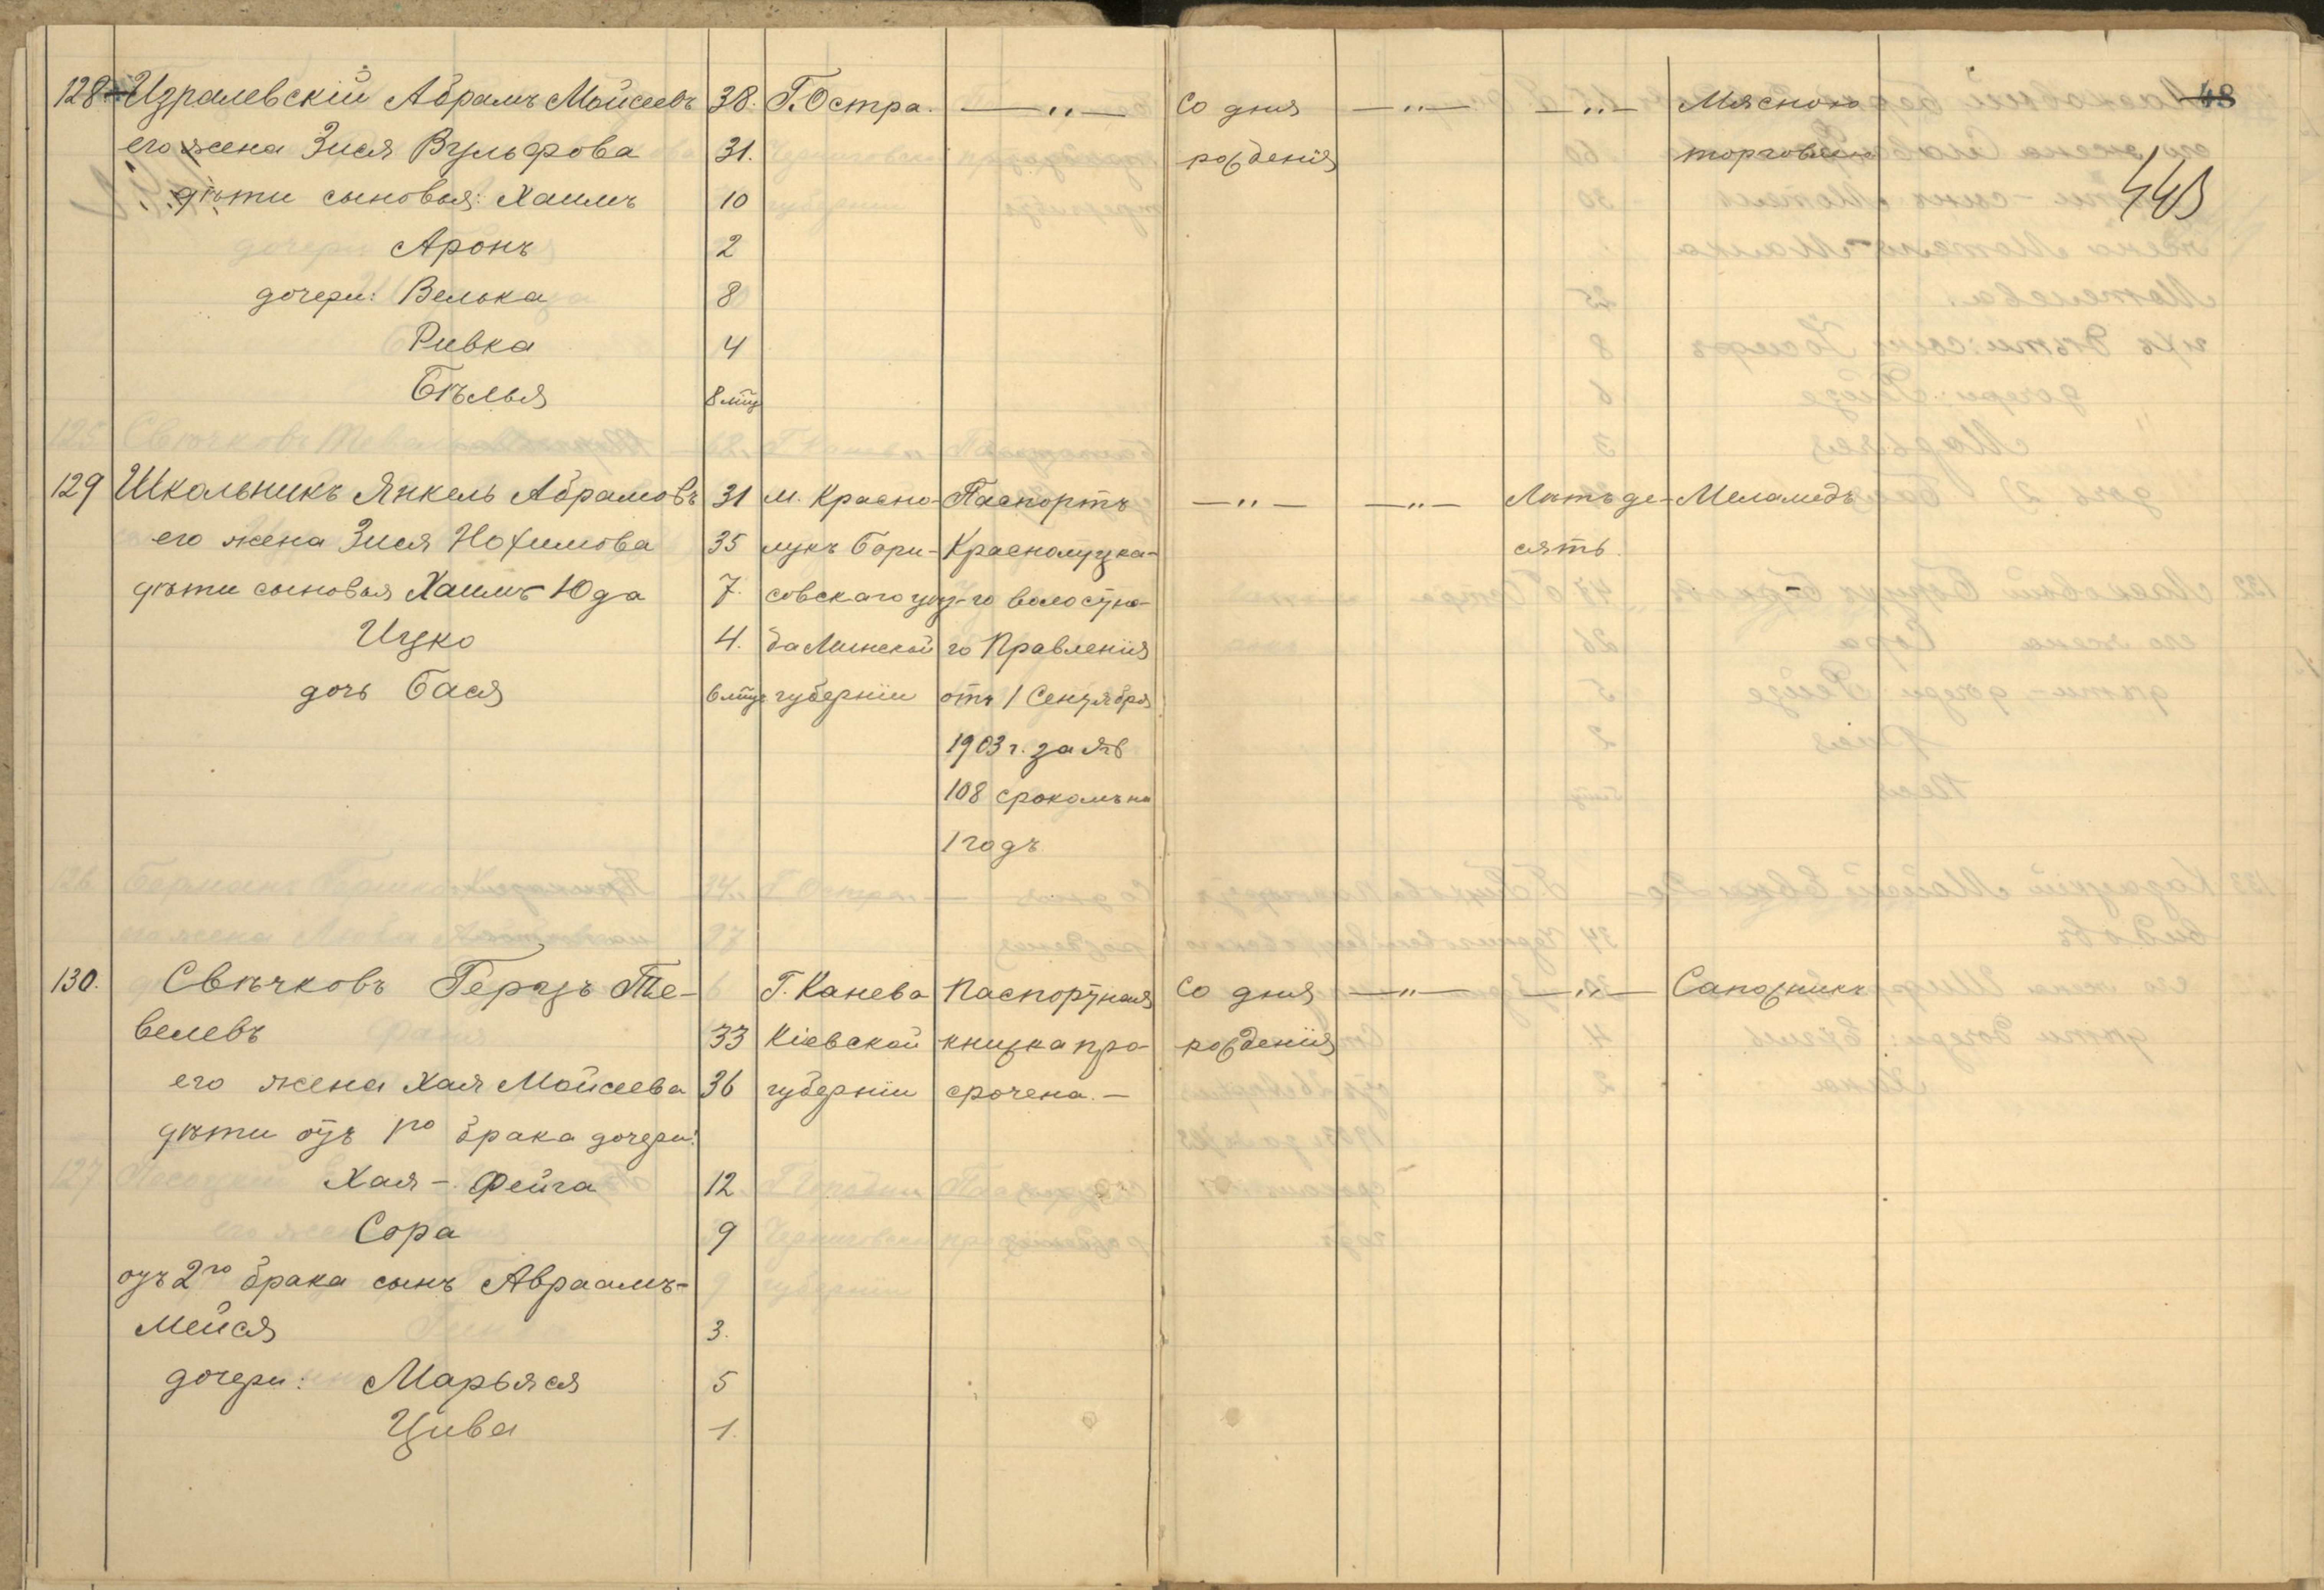 128 Изралевскій Абрамъ Мойсеевъ 38. Г. Остра. — „ — Со дня — „ — — „ — Мясною 48
его жена Зися Вульфова 31. рожденія торговлею
448
дѣти сыновья: Хаимъ 10
Аронъ 2
дочери: Велька 8
Ривка 4
Бѣлья 8 мѣц
129 Школьникъ Янкель Абрамовъ 31 м. Красно- Паспортъ — „ — — „ — Лѣтъ де- Меламедъ
его жена Зися Нохимова 35 лукъ Бори- Краснолуцка- сять
дѣти сыновья Хаимъ-Юда 7. совскаго уѣз- го волостно-
Ицко 4. да Минской го Правленія
дочь Бася 6 мѣц губерніи отъ 1 Сентября
1903 г. за №
108 срокомъ на
1 годъ
130. Свѣчковъ Герцъ Те- Г. Канева Паспортная Со дня — „ — — „ — Сапожникъ
велевъ 33 Кіевской книжка про- рожденія
его жена Хая Мойсеева 36 губерніи срочена. —
дѣти отъ 1го брака дочери:
Хая - Фейга 12
Сора 9
отъ 2го брака сынъ Авраамъ-
Мейся 3.
дочери: Марьяся 5
Цива 1.